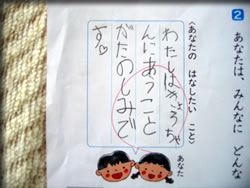 2 あなたは みんなに どんな
〈あなたの はなしたい こと〉
わたしはきょうちゃ
んにあうこと
がたのしみで
す♡
あなた